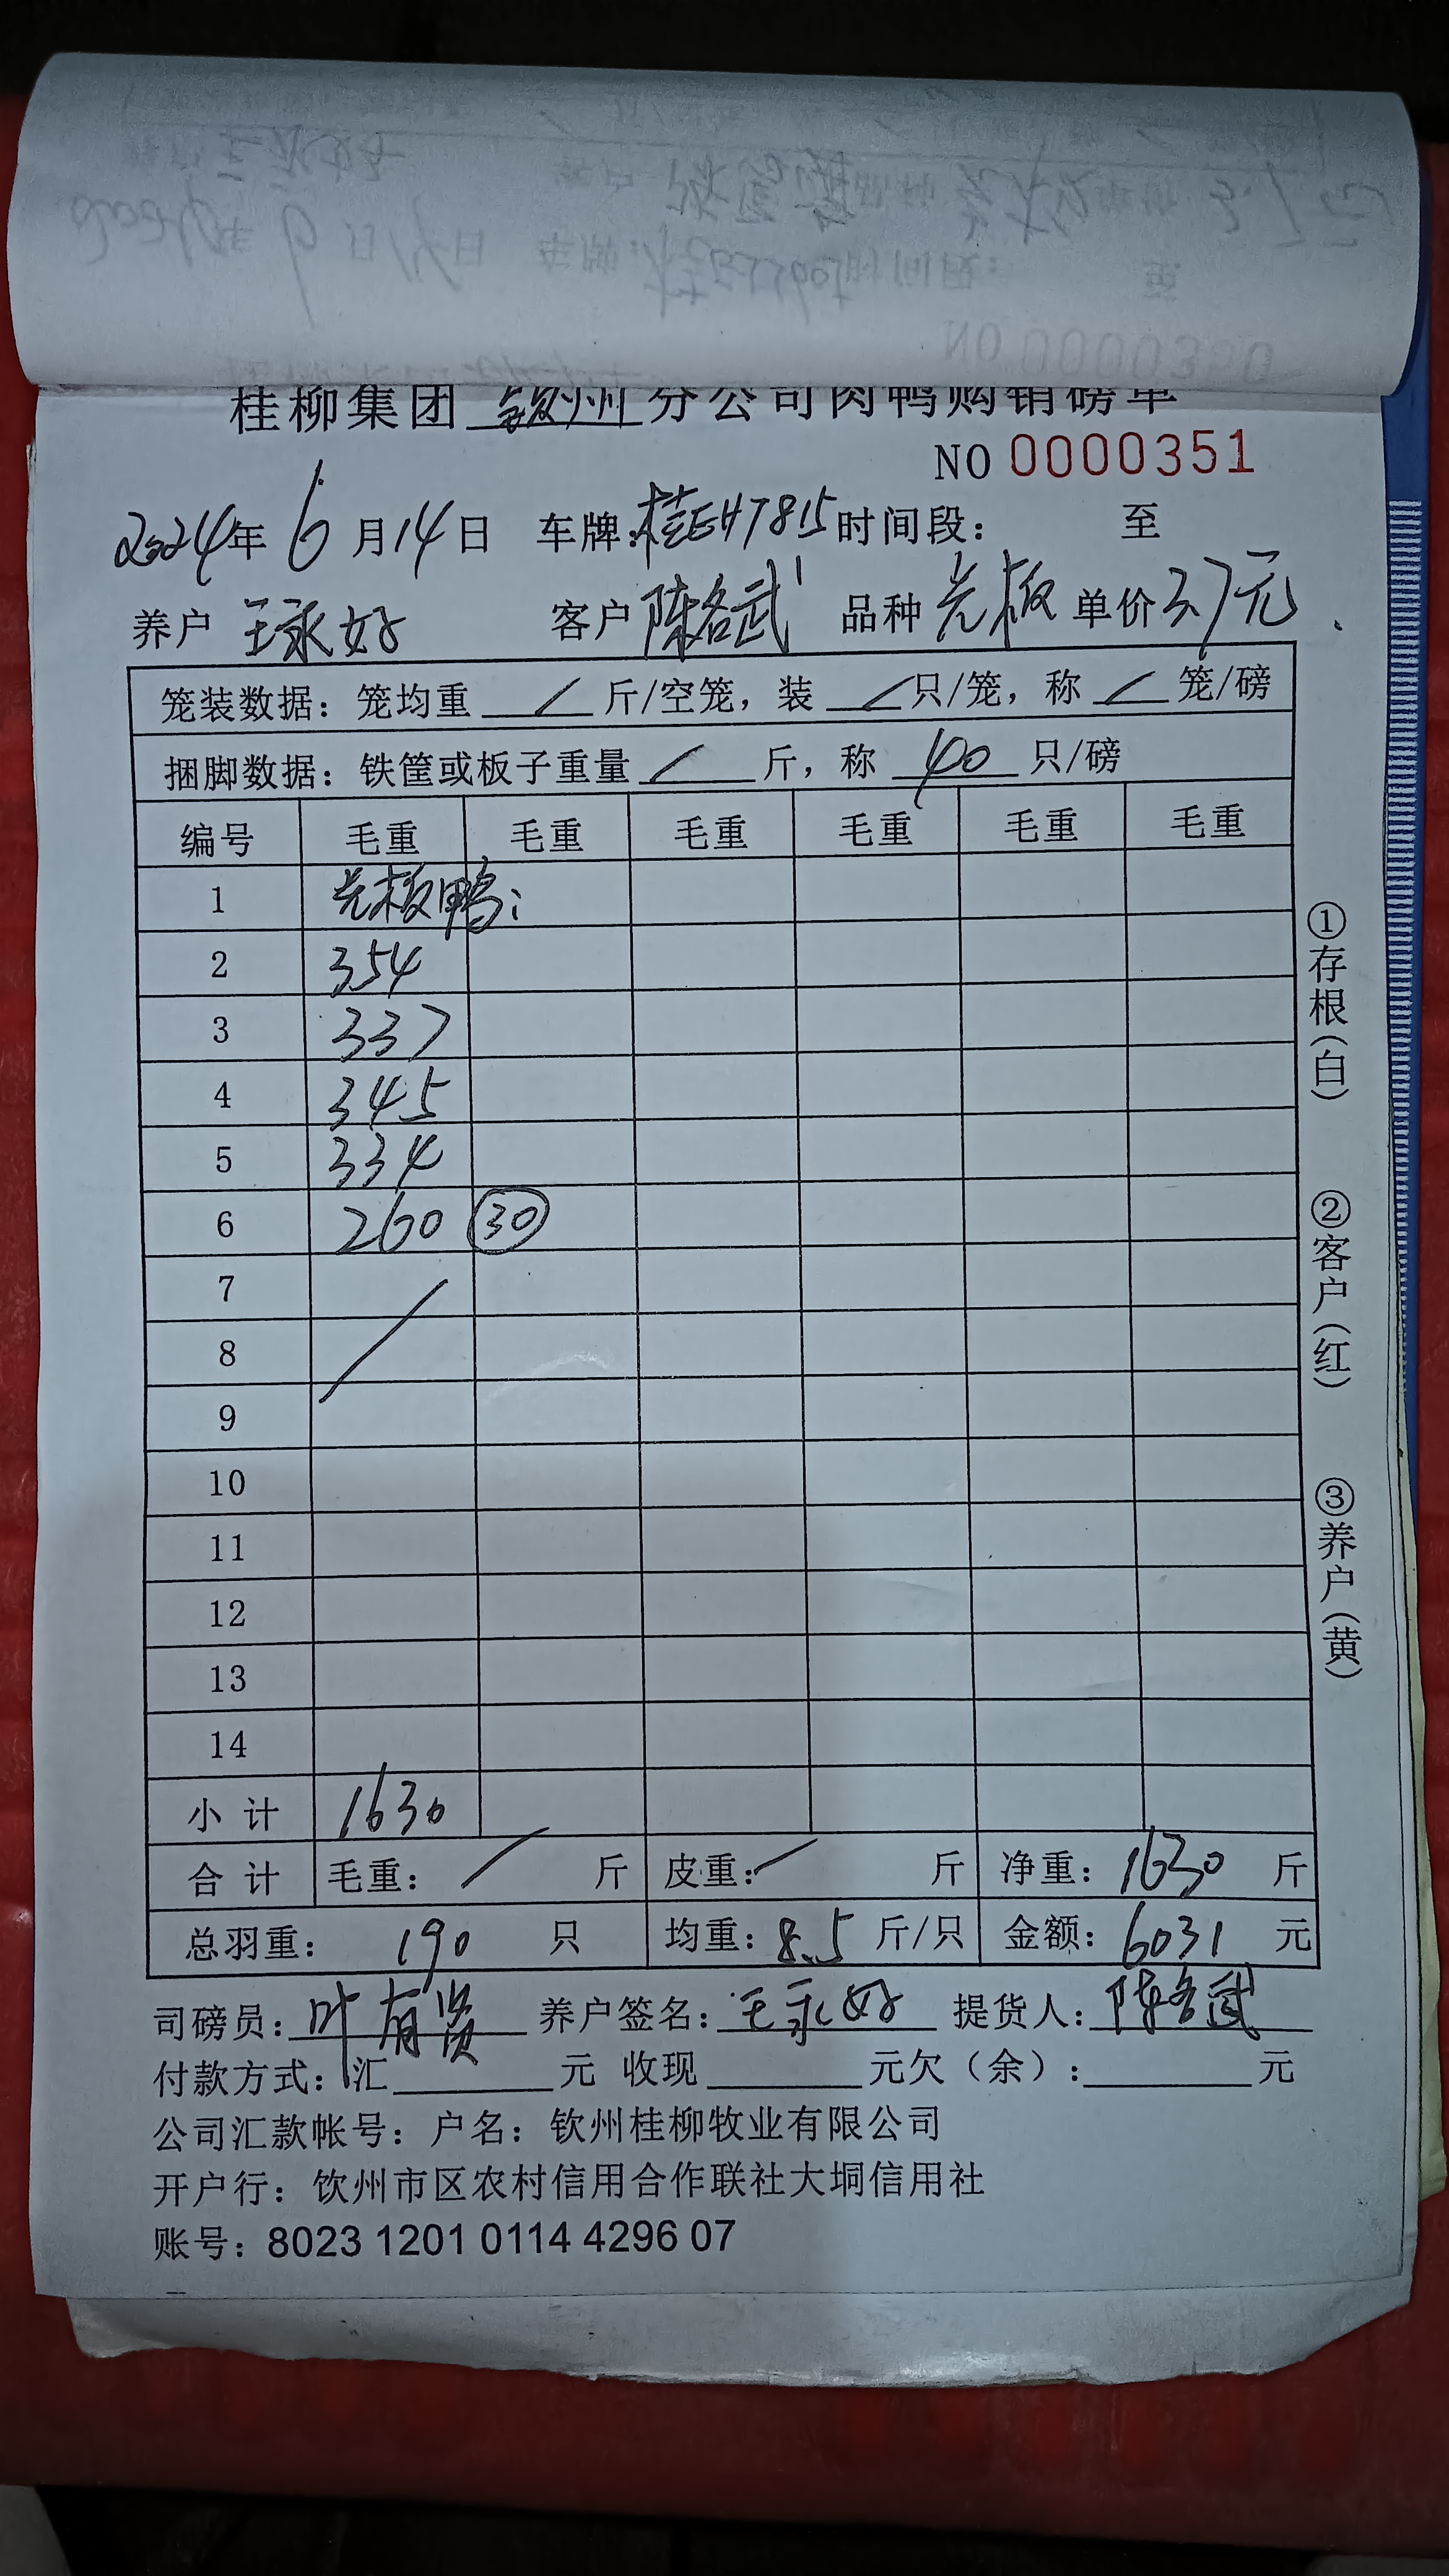 桂柳集团 钦州 分公司肉鸭购销磅单
NO 0000351
2024年 6 月 14 日 车牌: 桂E47815 时间段： 至
养户 王永好 客户 陈名武 品种 光板 单价 3.7元
笼装数据：笼均重 / 斤/空笼，装 / 只/笼，称 / 笼/磅
捆脚数据：铁筐或板子重量 / 斤，称 40 只/磅
编号 毛重 毛重 毛重 毛重 毛重 毛重
1 光板鸭:
2 354
3 337
4 345
5 334
6 260 30
7
8
9
10
11
12
13
14
小 计 1630
合 计 毛重： / 斤 皮重： / 斤 净重： 1630 斤
总羽重： 190 只 均重: 8.5 斤/只 金额: 6031 元
司磅员: 叶有贤 养户签名: 王永好 提货人: 陈名武
付款方式：汇 元 收现 元欠（余）: 元
公司汇款帐号：户名：钦州桂柳牧业有限公司
开户行：钦州市区农村信用合作联社大垌信用社
账号：8023 1201 0114 4296 07
①存根（白）
②客户（红）
③养户（黄）